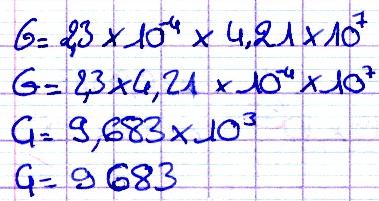 G = 2,3 × 10⁻⁴ × 4,21 × 10⁷
G = 2,3 × 4,21 × 10⁻⁴ × 10⁷
G = 9,683 × 10³
G = 9 683